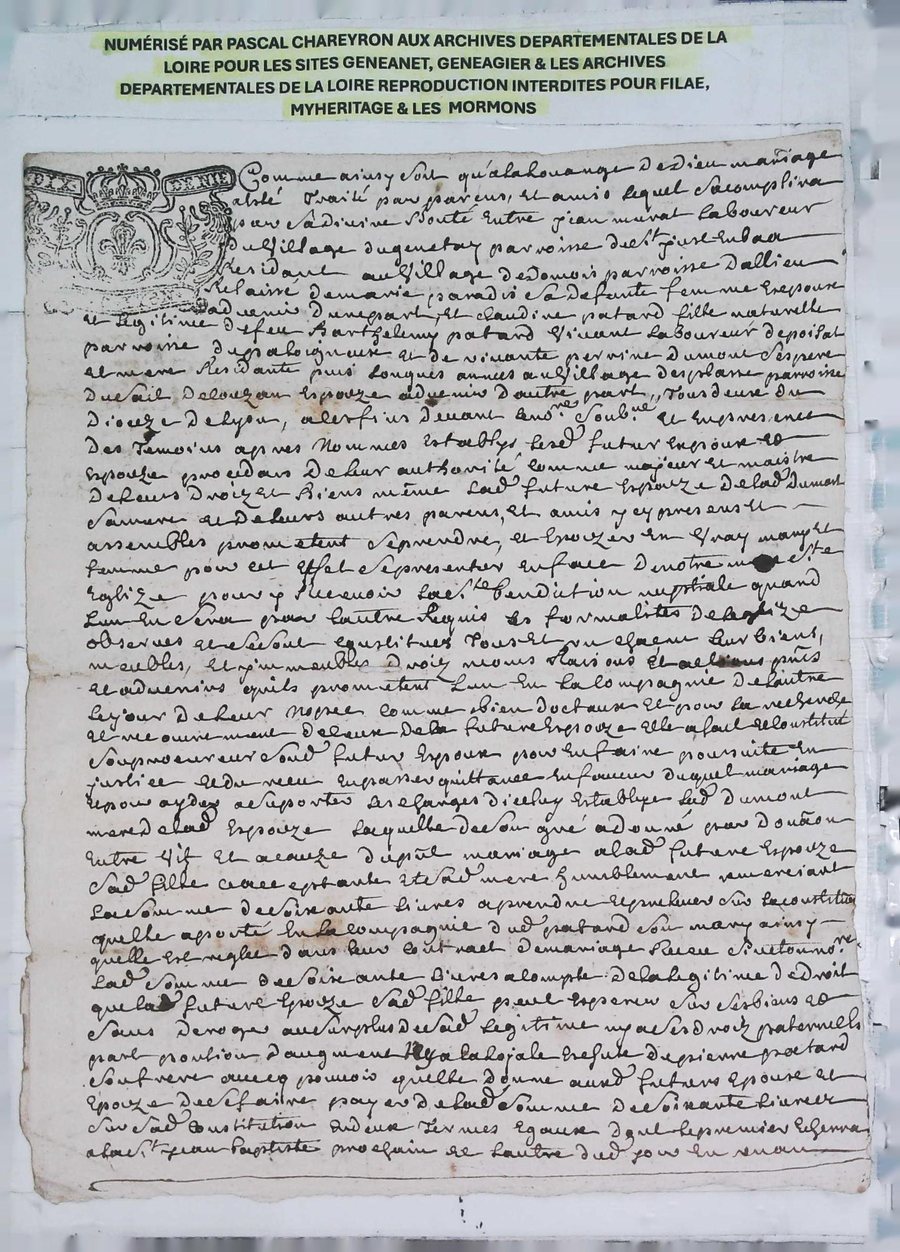 NUMÉRISÉ PAR PASCAL CHAREYRON AUX ARCHIVES DEPARTEMENTALES DE LA
LOIRE POUR LES SITES GENEANET, GENEAGIER & LES ARCHIVES
DEPARTEMENTALES DE LA LOIRE REPRODUCTION INTERDITES POUR FILAE,
MYHERITAGE & LES MORMONS
DIX DENIE
Comme ainsy soit qu'a la louange de Dieu mariage
aesté Traité par parens, et amis lequel sacomplira
par sa divine Bonté Entre jean murat Laboureur
du Village du genetay parroisse de St just Enbaa
Residant au Village de Domois parroisse Dallieu
Relaissé demarie paradis sa defunte femme Espoux
advenir Dunepart, et claudine patard fille naturelle
et legitime defeu Barthelemy patard Vivant Laboureur depoisat
parroisse du paloigneux et de vivante perrine Dumont Sespere
et mere Residante puis longues annees au Village desplasse parroisse
Dusail Delouzan Espouze advenir Dautre part, Tous deux du
Dioceze de Lyon, a lesfins devant Les nores Soubnés et En presence
Des Temoins apres Nommes Establys lesd futur Espoux et
Espouze procedans de leur authorité comme majeur et maistre
de leurs Droiz et Biens même Lad future Espouze de lad Dumont
samere et deleurs autres parens, et amis y cy presens et
assembles prometent se prendre, et Epouzer En Vray mary et
femme pour cet Effet se presenter En face de notre mere Ste
Eglize pour y Recevoir la Ste benediction nuptiale quand
Lun En sera par Lautre Requis les formalités de leglize
observes et se sont constitues Tous et un chacun leur biens,
meubles, et immeubles Droiz noms Raisons et actions pnts
et advenirs quils prometent Lun En la compagnie de lautre
le jour de leur Nopces comme bien doctaux et pour la recherche
et recouvrement de ceux de la future Espouze Elle a fait et constitué
son procureur sond futur Espoux pour En faire poursuite En
justice et du receu En passer quittance En faveur duquel mariage
et pour ayder a suporter les charges diceluy Establye Lad Dumont
mere de lad Espouze laquelle de son gré a donné par Donāon
Entre Vif et a cauze du pnt mariage a lad future Espouze
sad fille ce acceptante et sad mere humblement remerciant
La somme de soixante livres a prendre et prelever sur la constitution
quelle aporté En la compagnie dud patard son mary ainsy
quelle est reglée dans leur contract de mariage
Lad somme de soixante livres a compte de la legitime de Droit
que lad future Epouze sad fille peut Esperer sur ses biens et
sans deroger au surplus de sad legitime ny a ses droiz paternells
part portion daugment de pierre patard
son frere avecq pouvoir quelle donne aux futurs Epoux et
Epouze de se faire payer de lad somme de soixante livres
sur sad constitution En deux Termes Egaux dont le premier Echerra
a la St jean baptiste prochain et lautre dud jour En un an